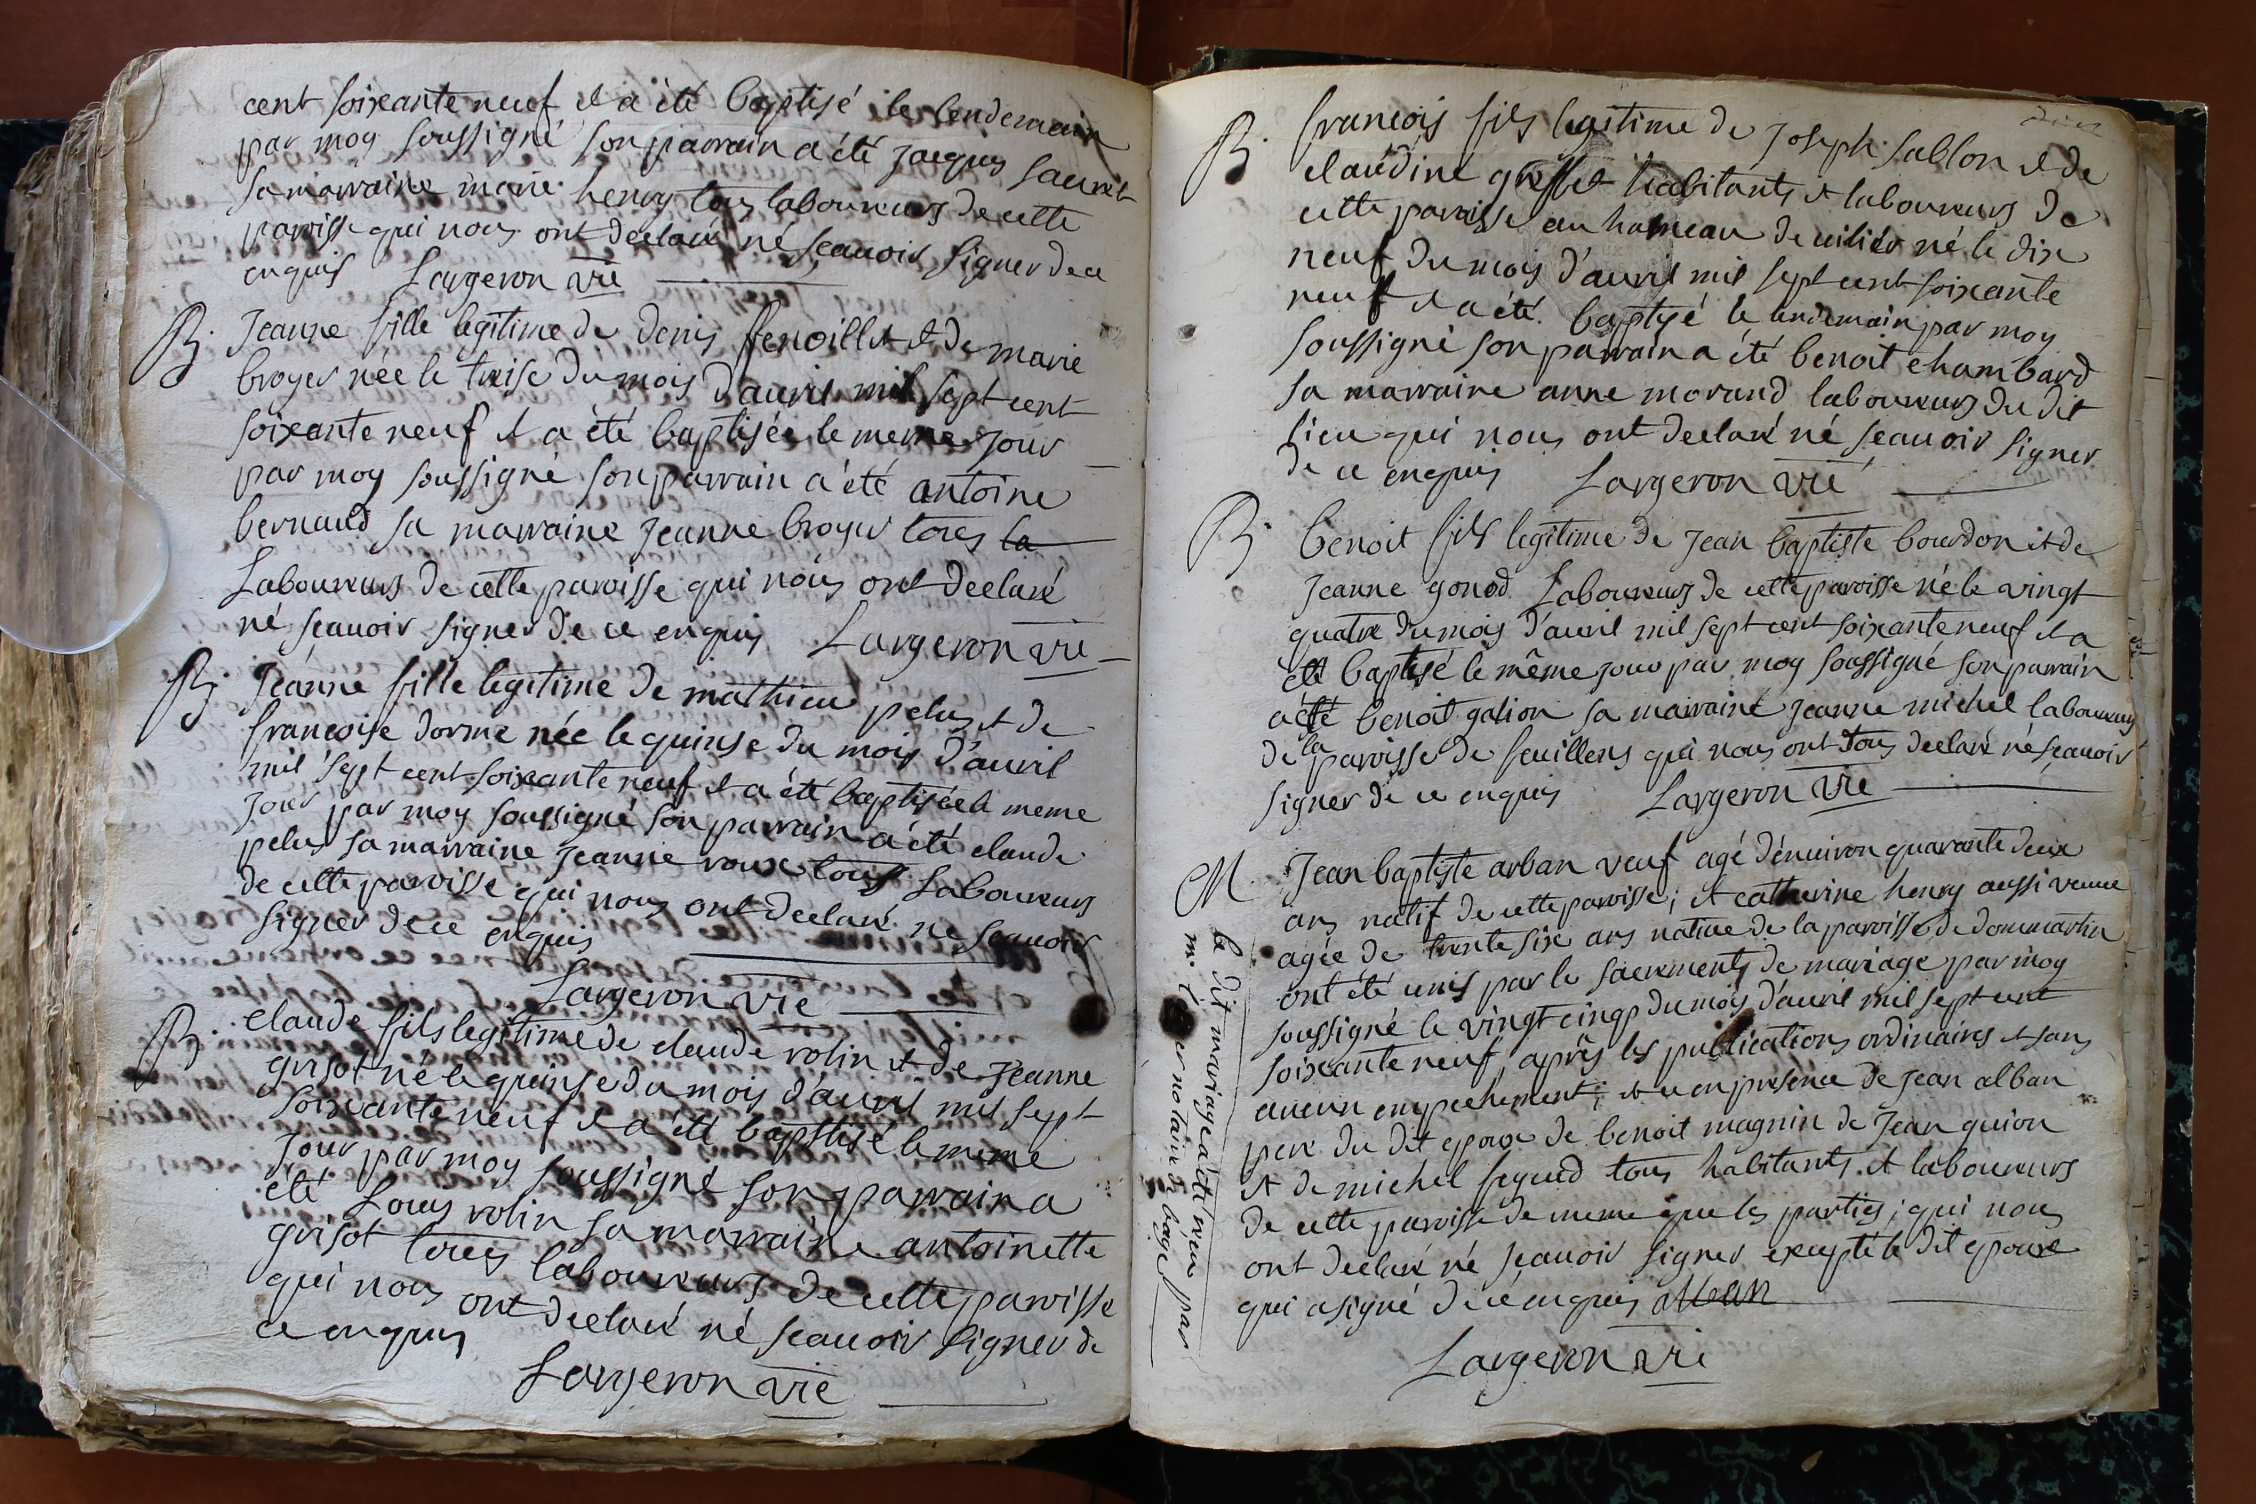 cent soixante neuf et a été baptisé le lendemain
par moy soussigné son parrain a été jacques sauret
sa marraine marie henry tous laboureurs de cette
paroisse qui nous ont declaré né scauoir signer de ce
enquis Largeron vic
B. Jeanne fille legitime de denis fenoillet et de marie
broyer née le treise du mois d'auril mil sept cent
soixante neuf et a été baptisée le meme jour
par moy soussigné son parrain a été antoine
bernard sa marraine jeanne broyer tous la
Laboureurs de cette paroisse qui nous ont declaré
né scauoir signer de ce enquis Largeron vic
B. Jeanne fille legitime de mathieu pelus et de
francoise dorme née le quinse du mois d'auril
mil sept cent soixante neuf et a été baptisée le meme
jour par moy soussigné son parrain a été claude
pelus sa marraine jeanne roux tous Laboureurs
de cette paroisse qui nous ont declaré ne scauoir
signer de ce enquis
Largeron vic
B. claude fils legitime de claude rolin et de jeanne
grisot né le quinse du mois d'auril mil sept
soixante neuf et a été baptisé le meme
jour par moy soussigné son parrain a
été Louis rolin sa marraine antoinette
grisot tous laboureurs de cette paroisse
qui nous ont declaré né scauoir signer de
ce enquis
Largeron vic
B. francois fils legitime de joseph sablon et de
claudine habitants et laboureurs de
cette paroisse au hameau de né le dix
neuf du mois d'auril mil sept cent soixante
neuf et a été baptisé le lendemain par moy
soussigné son parrain a été benoit chambard
sa marraine anne morand laboureurs du dit
lieu qui nous ont declaré né scauoir signer
de ce enquis Largeron vic
B. benoit fils legitime de jean baptiste bourdon et de
jeanne gonod Laboureurs de cette paroisse né le vingt
quatre du mois d'auril mil sept cent soixante neuf et a
été baptisé le même jour par moy soussigné son parrain
a été benoit galion sa marraine jeanne michel laboureurs
de la paroisse de feuillens qui nous ont tous declaré né scauoir
signer de ce enquis Largeron vic
M. Jean baptiste arban veuf agé d'enuiron quarante deux
ans natif de cette paroisse; et catherine henry aussi veuue
agée de trente six ans natiue de la paroisse de dommartin
ont été unis par le sacrements de mariage par moy
soussigné le vingt cinq du mois d'auril mil sept cent
soixante neuf après les publications ordinaires et sans
aucun empechement; et ce en presence de jean alban
pere du dit epoux de benoit magnin de jean guion
et de michel feguid tous habitants et laboureurs
de cette paroisse de meme que les parties; qui nous
ont declaré né scauoir signer excepté le dit epoux
qui a signé de ce enquis alban
Largeron vic
le dit mariage a été receu par
notaire de bagé